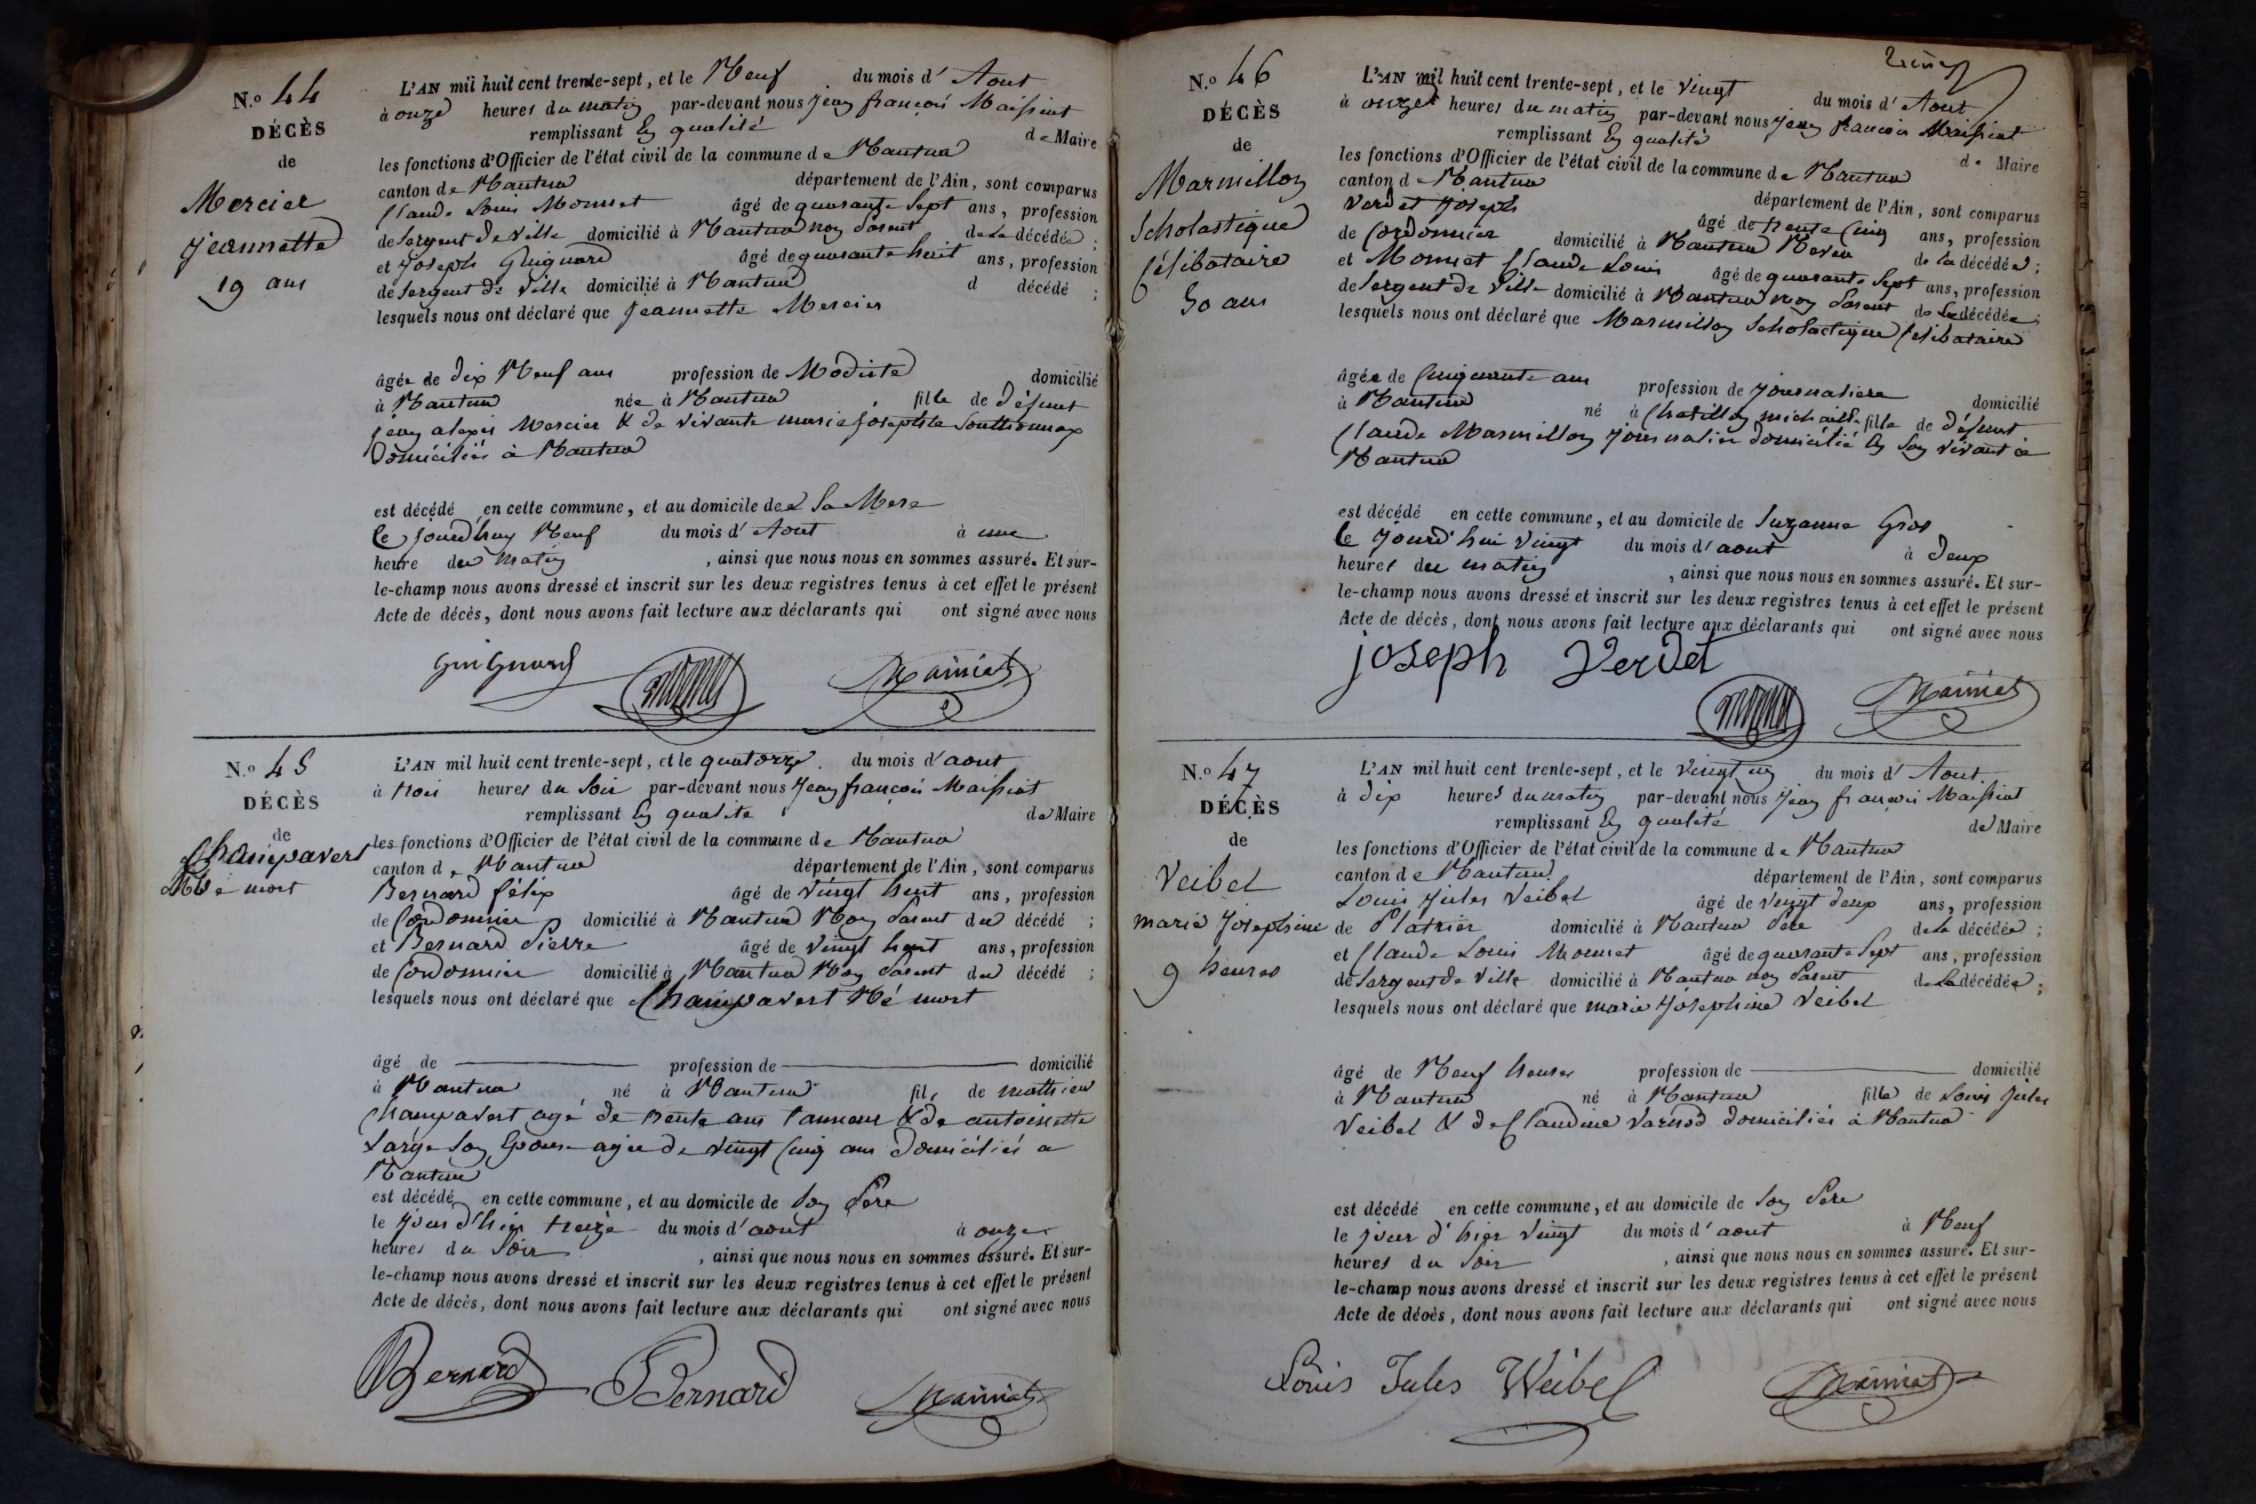 N.o 44
DÉCÈS
de
Mercier
Jeannette
19 ans
L'AN mil huit cent trente-sept, et le Neuf du mois d'Aout
à onze heures du matin par-devant nous Jean françois Maissiat
remplissant En qualité de Maire
les fonctions d'Officier de l'état civil de la commune de Nantua
canton de Nantua département de l'Ain, sont comparus
Claude Louis Monnet âgé de quarante Sept ans, profession
de Sergent de Ville domicilié à Nantua non parent de La décédée ;
et Joseph Guignard âgé de quarante huit ans, profession
de Sergent de Ville domicilié à Nantua d décédé ;
lesquels nous ont déclaré que Jeannette Mercier
âgée de dix Neuf ans profession de Modiste domicilié
à Nantua née à Nantua fille de défunt
jean alexis Mercier & de vivante marie Josephte
Domiciliés à Nantua
est décédé en cette commune, et au domicile de Sa Mere
Ce jourd'huy Neuf du mois d'Aout à une
heure du matin , ainsi que nous nous en sommes assuré. Et sur-
le-champ nous avons dressé et inscrit sur les deux registres tenus à cet effet le présent
Acte de décès, dont nous avons fait lecture aux déclarants qui ont signé avec nous
Guignard Monnet Maissiat
N.o 45
DÉCÈS
de
Champavert
Né mort
L'AN mil huit cent trente-sept, et le quatorze du mois d'aout
à trois heures du Soir par-devant nous Jean françois Maissiat
remplissant En qualité de Maire
les fonctions d'Officier de l'état civil de la commune de Nantua
canton de Nantua département de l'Ain, sont comparus
Bernard félix âgé de vingt huit ans, profession
de Cordonnier domicilié à Nantua Non parent du décédé ;
et Bernard Pierre âgé de vingt huit ans, profession
de Cordonnier domicilié à Nantua Non parent du décédé ;
lesquels nous ont déclaré que Champavert Né mort
âgé de profession de domicilié
à Nantua né à Nantua fils de mathieu
Champavert agé de trente ans tanneur & de antoinette
Large Son Epouse agée de vingt Cinq ans Domiciliés a
Nantua
est décédé en cette commune, et au domicile de Son Pere
le jour d'hier treize du mois d'aout à onze
heures du Soir , ainsi que nous nous en sommes assuré. Et sur-
le-champ nous avons dressé et inscrit sur les deux registres tenus à cet effet le présent
Acte de décès, dont nous avons fait lecture aux déclarants qui ont signé avec nous
Bernard Bernard Maissiat
N.o 46
DÉCÈS
de
Marmillon
Scholastique
Célibataire
50 ans
L'AN mil huit cent trente-sept, et le vingt du mois d'Aout
à onze heures du matin par-devant nous Jean francois Maissiat
remplissant En qualité de Maire
les fonctions d'Officier de l'état civil de la commune de Nantua
canton de Nantua département de l'Ain, sont comparus
Verdet Joseph âgé de trente Cinq ans, profession
de Cordonnier domicilié à Nantua Neveu de La décédée ;
et Monnet Claude Louis âgé de quarante Sept ans, profession
de Sergent de Ville domicilié à Nantua non parent de La décédée ;
lesquels nous ont déclaré que Marmillon Scholastique Célibataire
âgée de Cinquante ans profession de Journaliere domicilié
à Nantua né à Chatillon michaille fille de défunt
Claude Marmillon journalier domicilié En Son vivant à
Nantua
est décédé en cette commune, et au domicile de Suzanne Gros
Ce Jourd'hui vingt du mois d'aout à deux
heures du matin , ainsi que nous nous en sommes assuré. Et sur-
le-champ nous avons dressé et inscrit sur les deux registres tenus à cet effet le présent
Acte de décès, dont nous avons fait lecture aux déclarants qui ont signé avec nous
joseph Verdet
Monnet Maissiat
N.o 47
DÉCÈS
de
Veibel
marie Josephine
9 heures
L'AN mil huit cent trente-sept, et le vingt un du mois d'Aout
à dix heures du matin par-devant nous Jean françois Maissiat
remplissant En qualité de Maire
les fonctions d'Officier de l'état civil de la commune de Nantua
canton de Nantua département de l'Ain, sont comparus
Louis Jules Veibel âgé de vingt deux ans, profession
de Platrier domicilié à Nantua Pere de La décédée ;
et Claude Louis Monnet âgé de quarante Sept ans, profession
de Sergent de Ville domicilié à Nantua non Parent de La décédée ;
lesquels nous ont déclaré que marie Josephine Veibel
âgé de Neuf heures profession de domicilié
à Nantua né à Nantua fille de Louis Jules
Veibel & de Claudine Varnod domiciliés à Nantua
est décédé en cette commune, et au domicile de Son Pere
le jour d'hier vingt du mois d'aout à Neuf
heures du Soir , ainsi que nous nous en sommes assuré. Et sur-
le-champ nous avons dressé et inscrit sur les deux registres tenus à cet effet le présent
Acte de décès, dont nous avons fait lecture aux déclarants qui ont signé avec nous
Louis Jules Weibel Maissiat